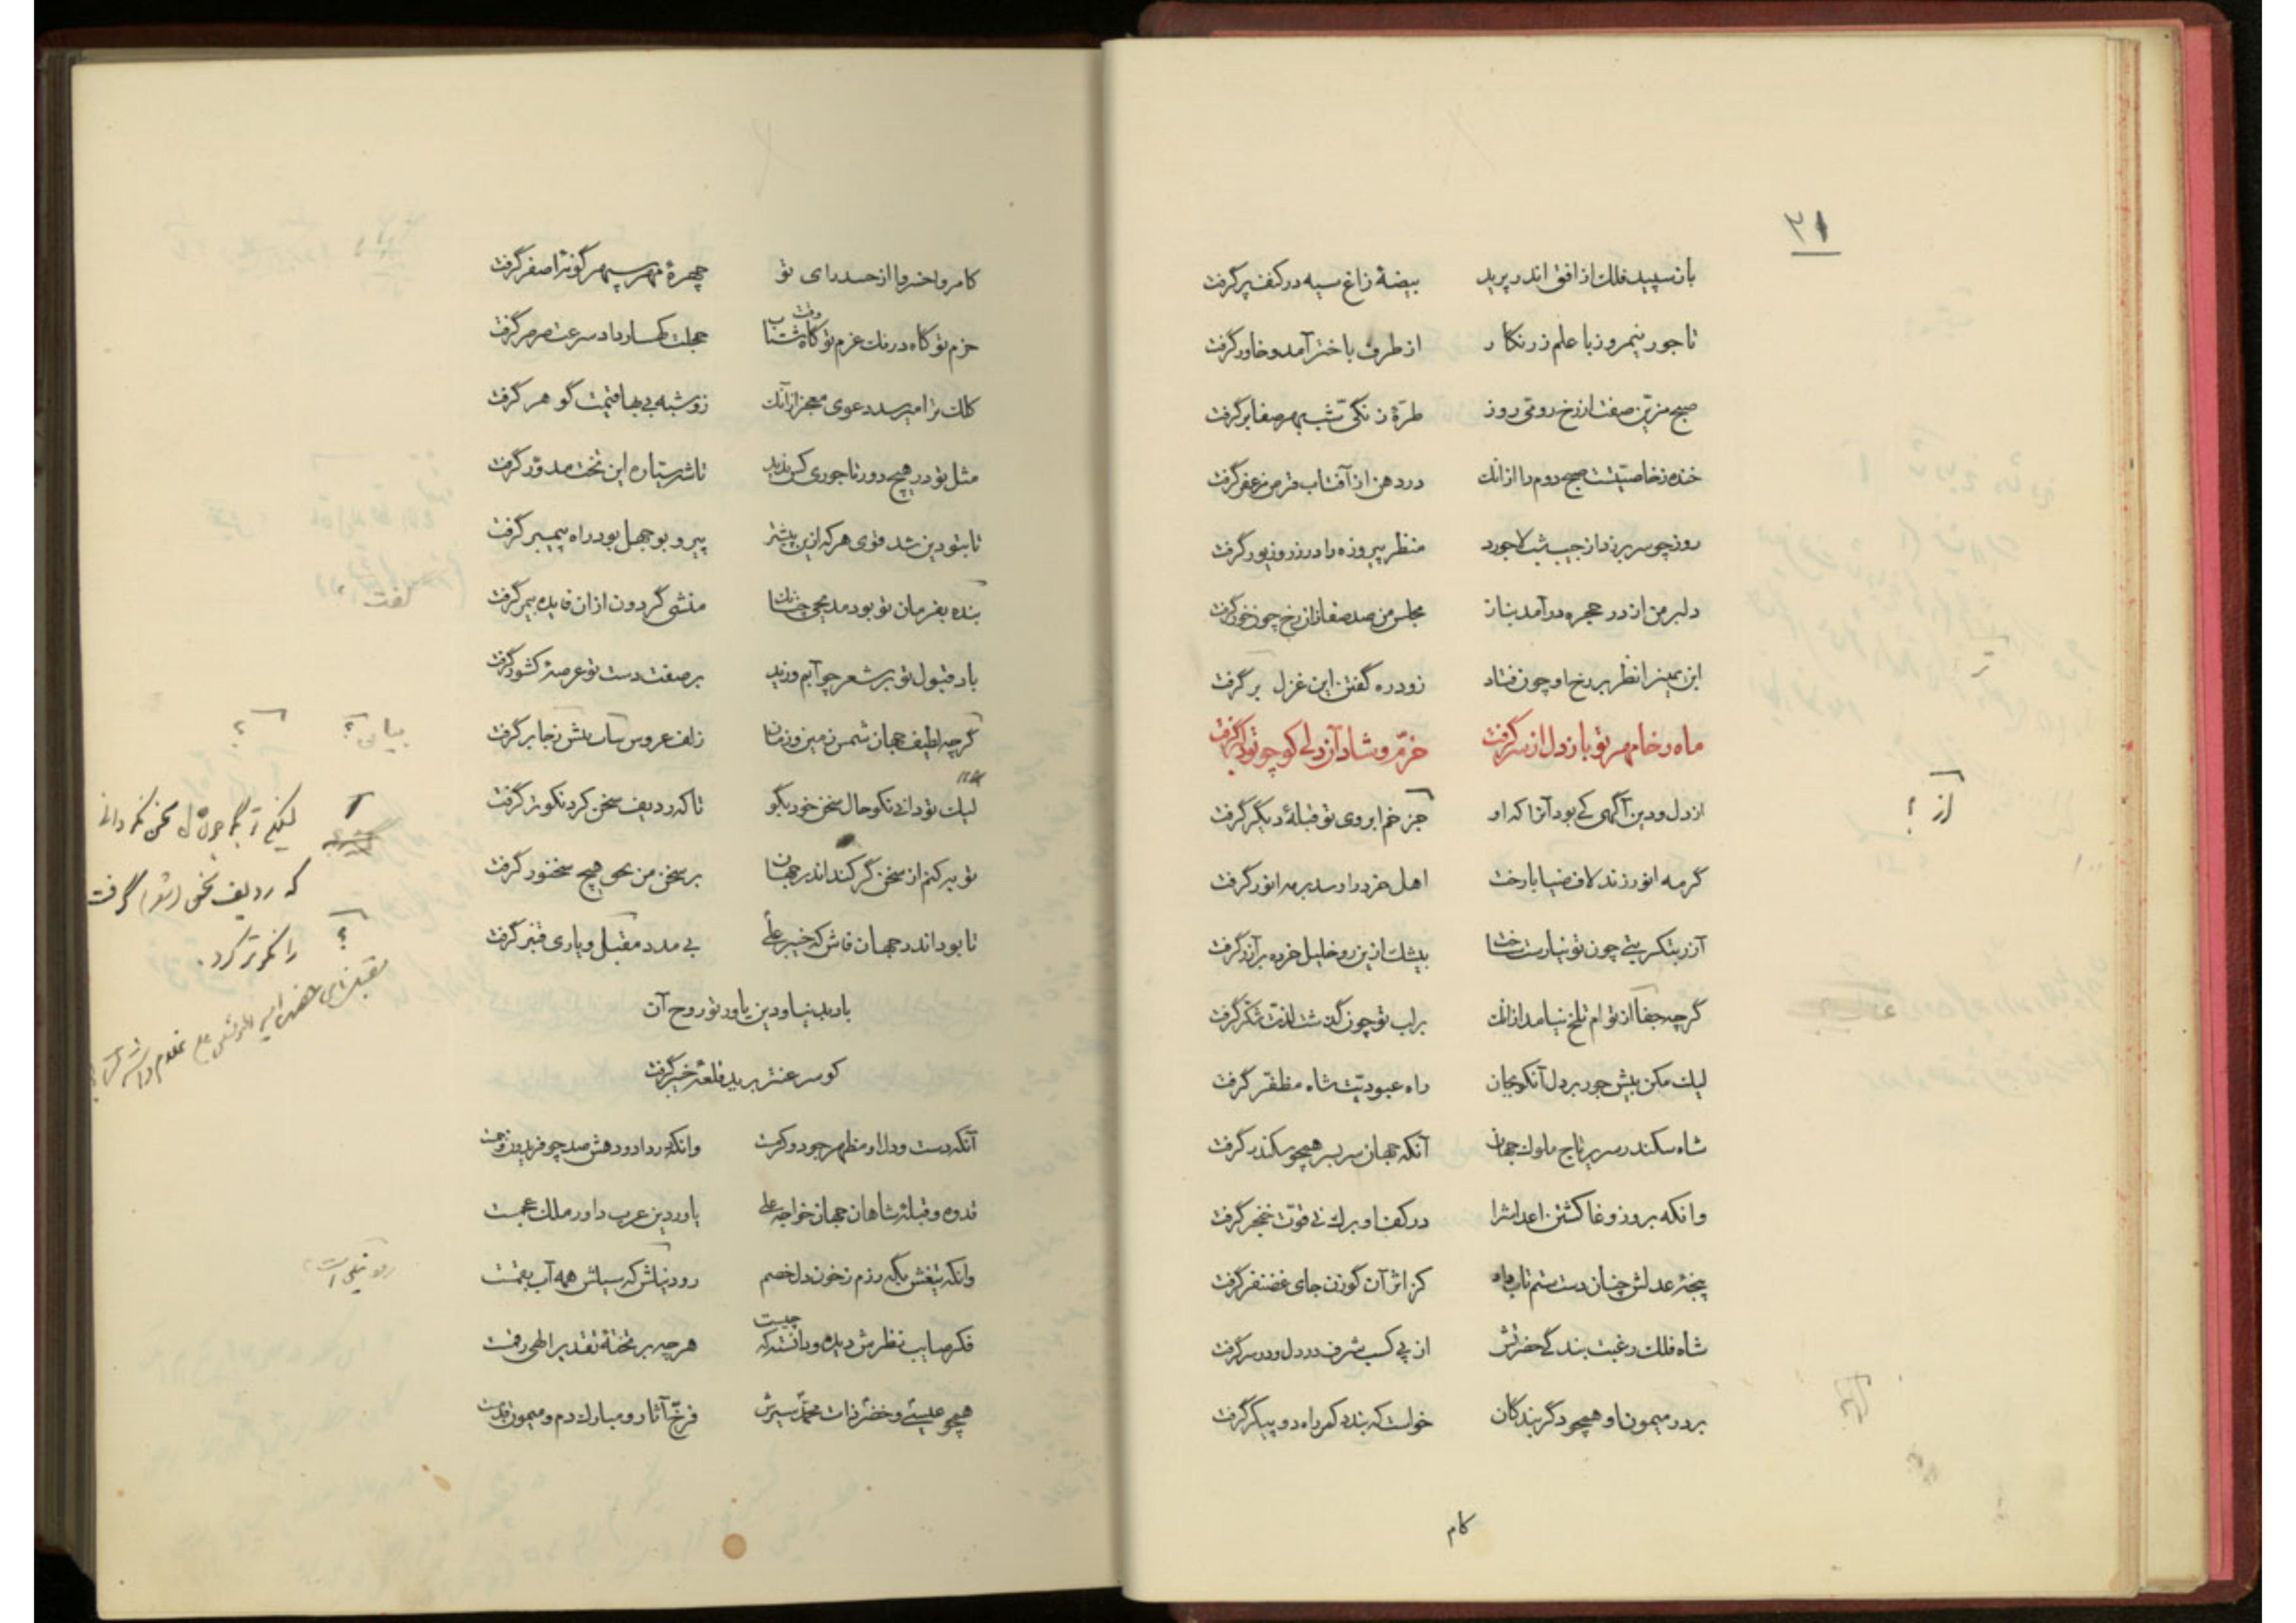 ۳۱
باز سپید فلک از افق اندر پرید بیضهٔ زاغ سیه در کنف پر گرفت
تاجور نیمروز با علم زرنگار از طرف باختر آمد و خاور گرفت
صبح مزین صفت از رخ رومی روز طرّهٔ زنگی شب بهر صفا بر گرفت
خنده زخاصیتست صبح دوم را ازانک در دهن از آفتاب قرص مزعفر گرفت
روز چو سر بر زد از جیب شب لاجورد منظر پیروزه را در زر و زیور گرفت
دلبر من از در حجره در آمد بناز مجلس من صد صفا زان رخ چون خور گرفت
ابن یمین را نظر بر رخ او چون فتاد زود ره گفتن این غزل بر گرفت
ماه رخا مهر تو باز دل از سر گرفت خرّم و شاد آن دلی کو چو تو دلبر گرفت
از دل و دین آگهی کی بود آنرا که او جز خم ابروی تو قبلهٔ دیگر گرفت
از ؟
گر مه انور زند لاف ضیا با رخت اهل خرد را رسد بر مه انور گرفت
آزر بتگر بتی چون تو نیاراست بیشک ازین رو خلیل خرده بر آزر گرفت
گرچه جفا از تو ام تلخ نیامد ازانک بر لب تو چون گذشت لذت شکر گرفت
لیک مکن بیش جور بر دل آنکو بجان راه عبودیت شاه مظفّر گرفت
شاه سکندر سریر تاج ملوک جهان آنکه جهان سر بسر همچو سکندر گرفت
وانکه بروز وغا کشتن اعداش را در کف او برگ نی قوّت خنجر گرفت
پنجهٔ عدلش چنان دست ستم تاب داد کز اثر آن گوزن جای غضنفر گرفت
شاه فلک رغبت بندگی حضرتش از پی کسب شرف در دل و در سر گرفت
بر در میمون او همچو دگر بندگان خواست که بندد کمر راه دو پیکر گرفت
کام
کامروا خسروا از حسد رای تو چهرهٔ مهر سپهر گونهٔ اصفر گرفت
حزم تو گاه درنگ عزم تو گاه شتاب خجلت کهسار داد سرعت صرصر گرفت
وقت
کلک ترا میرسد دعوی معجز ازآنک زو شبه بی بها قیمت گوهر گرفت
مثل تو در هیچ دور تاجوری کس ندید تا شه سیاره این تخت مدوّر گرفت
تا بتو دین شد قوی هر که ازین پیشتر پیرو بوجهل بود راه پیمبر گرفت
بنده بفرمان تو بود مدیحی چنانک منشی گردون ازان فایده بیمر گرفت
گفت
باد قبول تو بر شعر چو آبم وزید بر صفت دست تو عرصهٔ کشور گرفت
گرچه لطیف جهان شمس زمین و زمان زلف عروس بیانش ز بر گرفت
بیانی ؟ ؟
لیک تو دانی نکو حال سخن خود بگو تا که ردیف سخن کرد نکوتر گرفت
که ردیف سخن (شعر) گرفت
را نکوتر کرد. ؟
توبه کنم از سخن گر کند اندر جهان بر سخن من بحق هیچ سخنور گرفت
تا بود اندر جهان فاش که خیبر علی بی مدد مقبل و یاری قنبر گرفت
باد بدنیا و دین یاور تو روح آن
کو سر عنتر برید قلعهٔ خیبر گرفت
آنکه دست و دل او مظهر جود و کرمست وانکه در داد و دهش صد چو فریدون و جمست
قدوه و قبلهٔ شاهان جهان خواجه علی یاور دین عرب داور ملک عجمست
وانکه تیغش بگه رزم ز خون دل خصم رود نیلش که سپاش همه آب بقمست
رود نیلی است
فکر صایب نظرش دیده و دانسته که چیست هر چه بر تختهٔ تقدیر الهی رقمست
همچو عیسی و خضر ذات محمد سیرش فرّخ آثار و مبارک دم و میمون قدمست